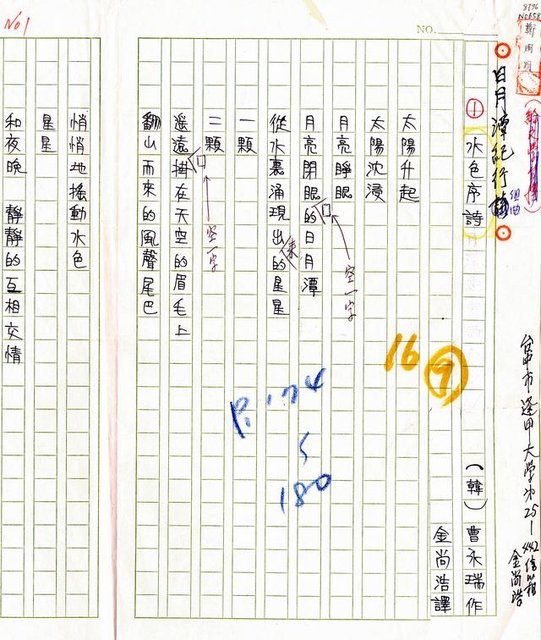 8796
鄭烱明
台中市逢甲大學
25-442信箱
金尚浩
日月潭紀行
組曲
① 水色序詩
(韓)曹永瑞作
金尚浩譯
NO.
16 ⑨
太陽升起
太陽沈沒
月亮睜眼
空一字
月亮閉眼的日月潭
從水裏涌現出來的星星
一顆
二顆
空一字
遙遠掛在天空的眉毛上
翻山而來的風聲尾巴
P.174
5
180
No1
悄悄地搖動水色
星星
和夜晚 靜靜的互相交情